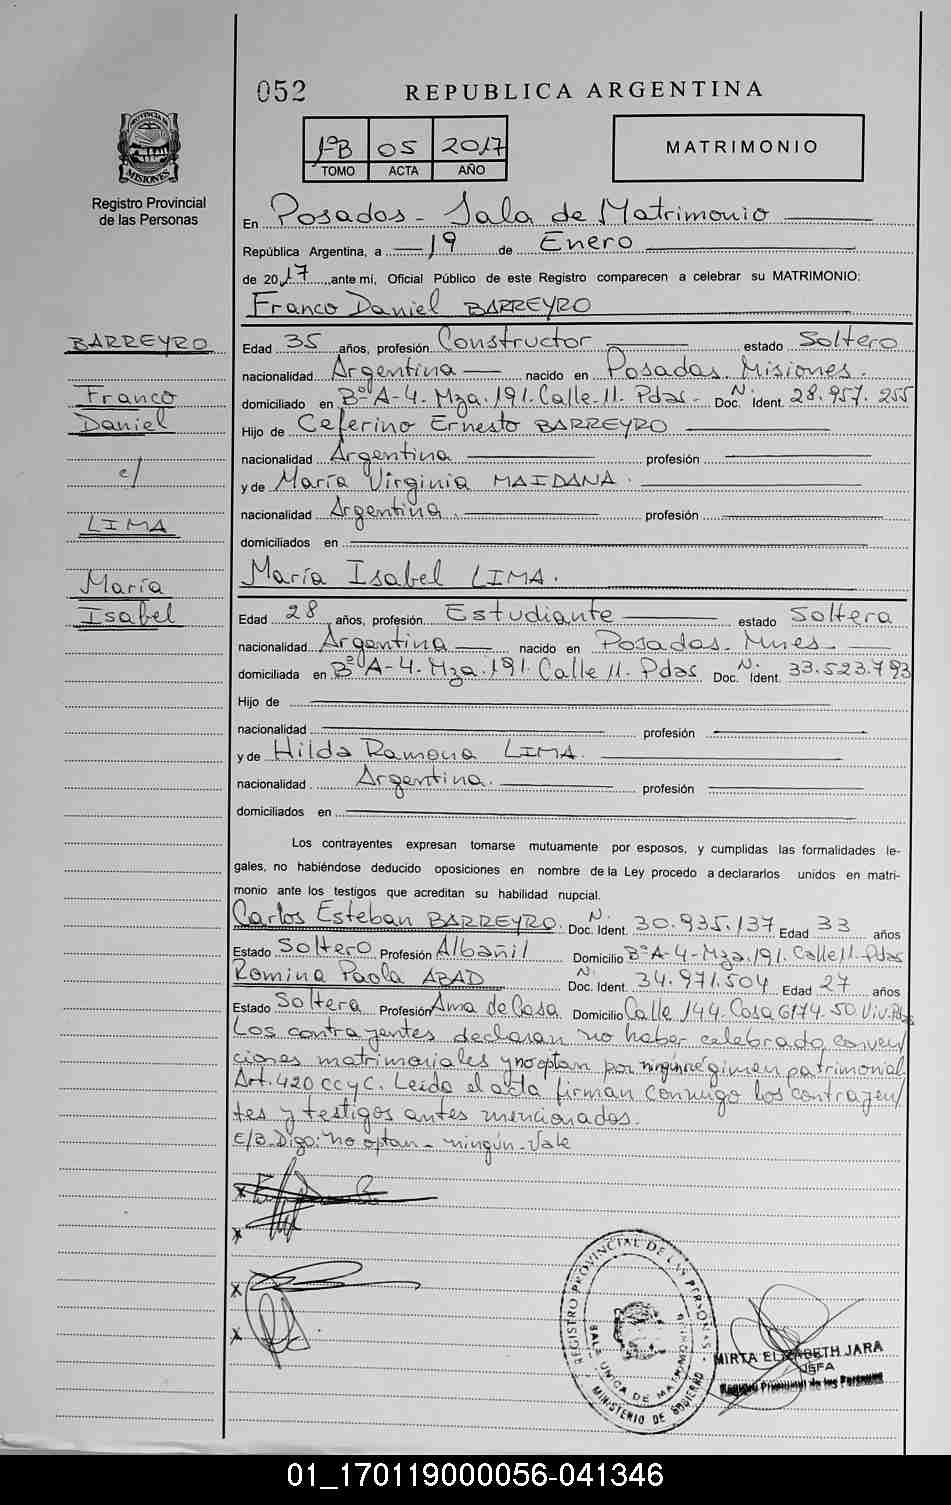 052 REPUBLICA ARGENTINA
1ºB 05 2017
TOMO ACTA AÑO
MATRIMONIO
PROVINCIA DE
MISIONES
Registro Provincial
de las Personas
En Posadas - Sala de Matrimonio
República Argentina, a 19 de Enero
de 2017, ante mi, Oficial Público de este Registro comparecen a celebrar su MATRIMONIO:
Franco Daniel BARREYRO
BARREYRO
Franco
Daniel
c/
LIMA
María
Isabel
Edad 35 años, profesión Constructor estado Soltero
nacionalidad Argentina nacido en Posadas Misiones.
domiciliado en Bº A-4. Mza. 191. Calle 11. Pdas. Doc. N. Ident. 28.957.255
Hijo de Ceferino Ernesto BARREYRO
nacionalidad Argentina profesión
y de María Virginia MAIDANA.
nacionalidad Argentina. profesión
domiciliados en
María Isabel LIMA.
Edad 28 años, profesión Estudiante estado Soltera
nacionalidad Argentina nacido en Posadas. Mnes.
domiciliada en Bº A-4. Mza. 191. Calle 11. Pdas Doc. N. Ident. 33.523.793
Hijo de
nacionalidad profesión
y de Hilda Ramona LIMA.
nacionalidad Argentina. profesión
domiciliados en
Los contrayentes expresan tomarse mutuamente por esposos, y cumplidas las formalidades le-
gales, no habiéndose deducido oposiciones en nombre de la Ley procedo a declararlos unidos en matri-
monio ante los testigos que acreditan su habilidad nupcial.
Carlos Esteban BARREYRO. Doc. N. Ident. 30.935.137 Edad 33 años
Estado Soltero Profesión Albañil Domicilio Bº A-4-Mza. 191. Calle 11. Pdas
Romina Paola ABAD Doc. N. Ident. 34.971.504 Edad 27 años
Estado Soltera Profesión Ama de Casa Domicilio Calle 144. Casa 6174. 50 Viv. Pdas
Los contrayentes declaran no haber celebrado conven
ciones matrimoniales y no optan por ningún régimen patrimonial
Art. 420 CCyC. Leída el acta firman conmigo los contrayen/
tes y testigos antes mencionados.
E/B. Digo: no optan - ningún. Vale
REGISTRO PROVINCIAL DE LAS PERSONAS
MINISTERIO DE GOBIERNO
MIRTA ELIZABETH JARA
JEFA
Registro Provincial de las Personas
01_170119000056-041346